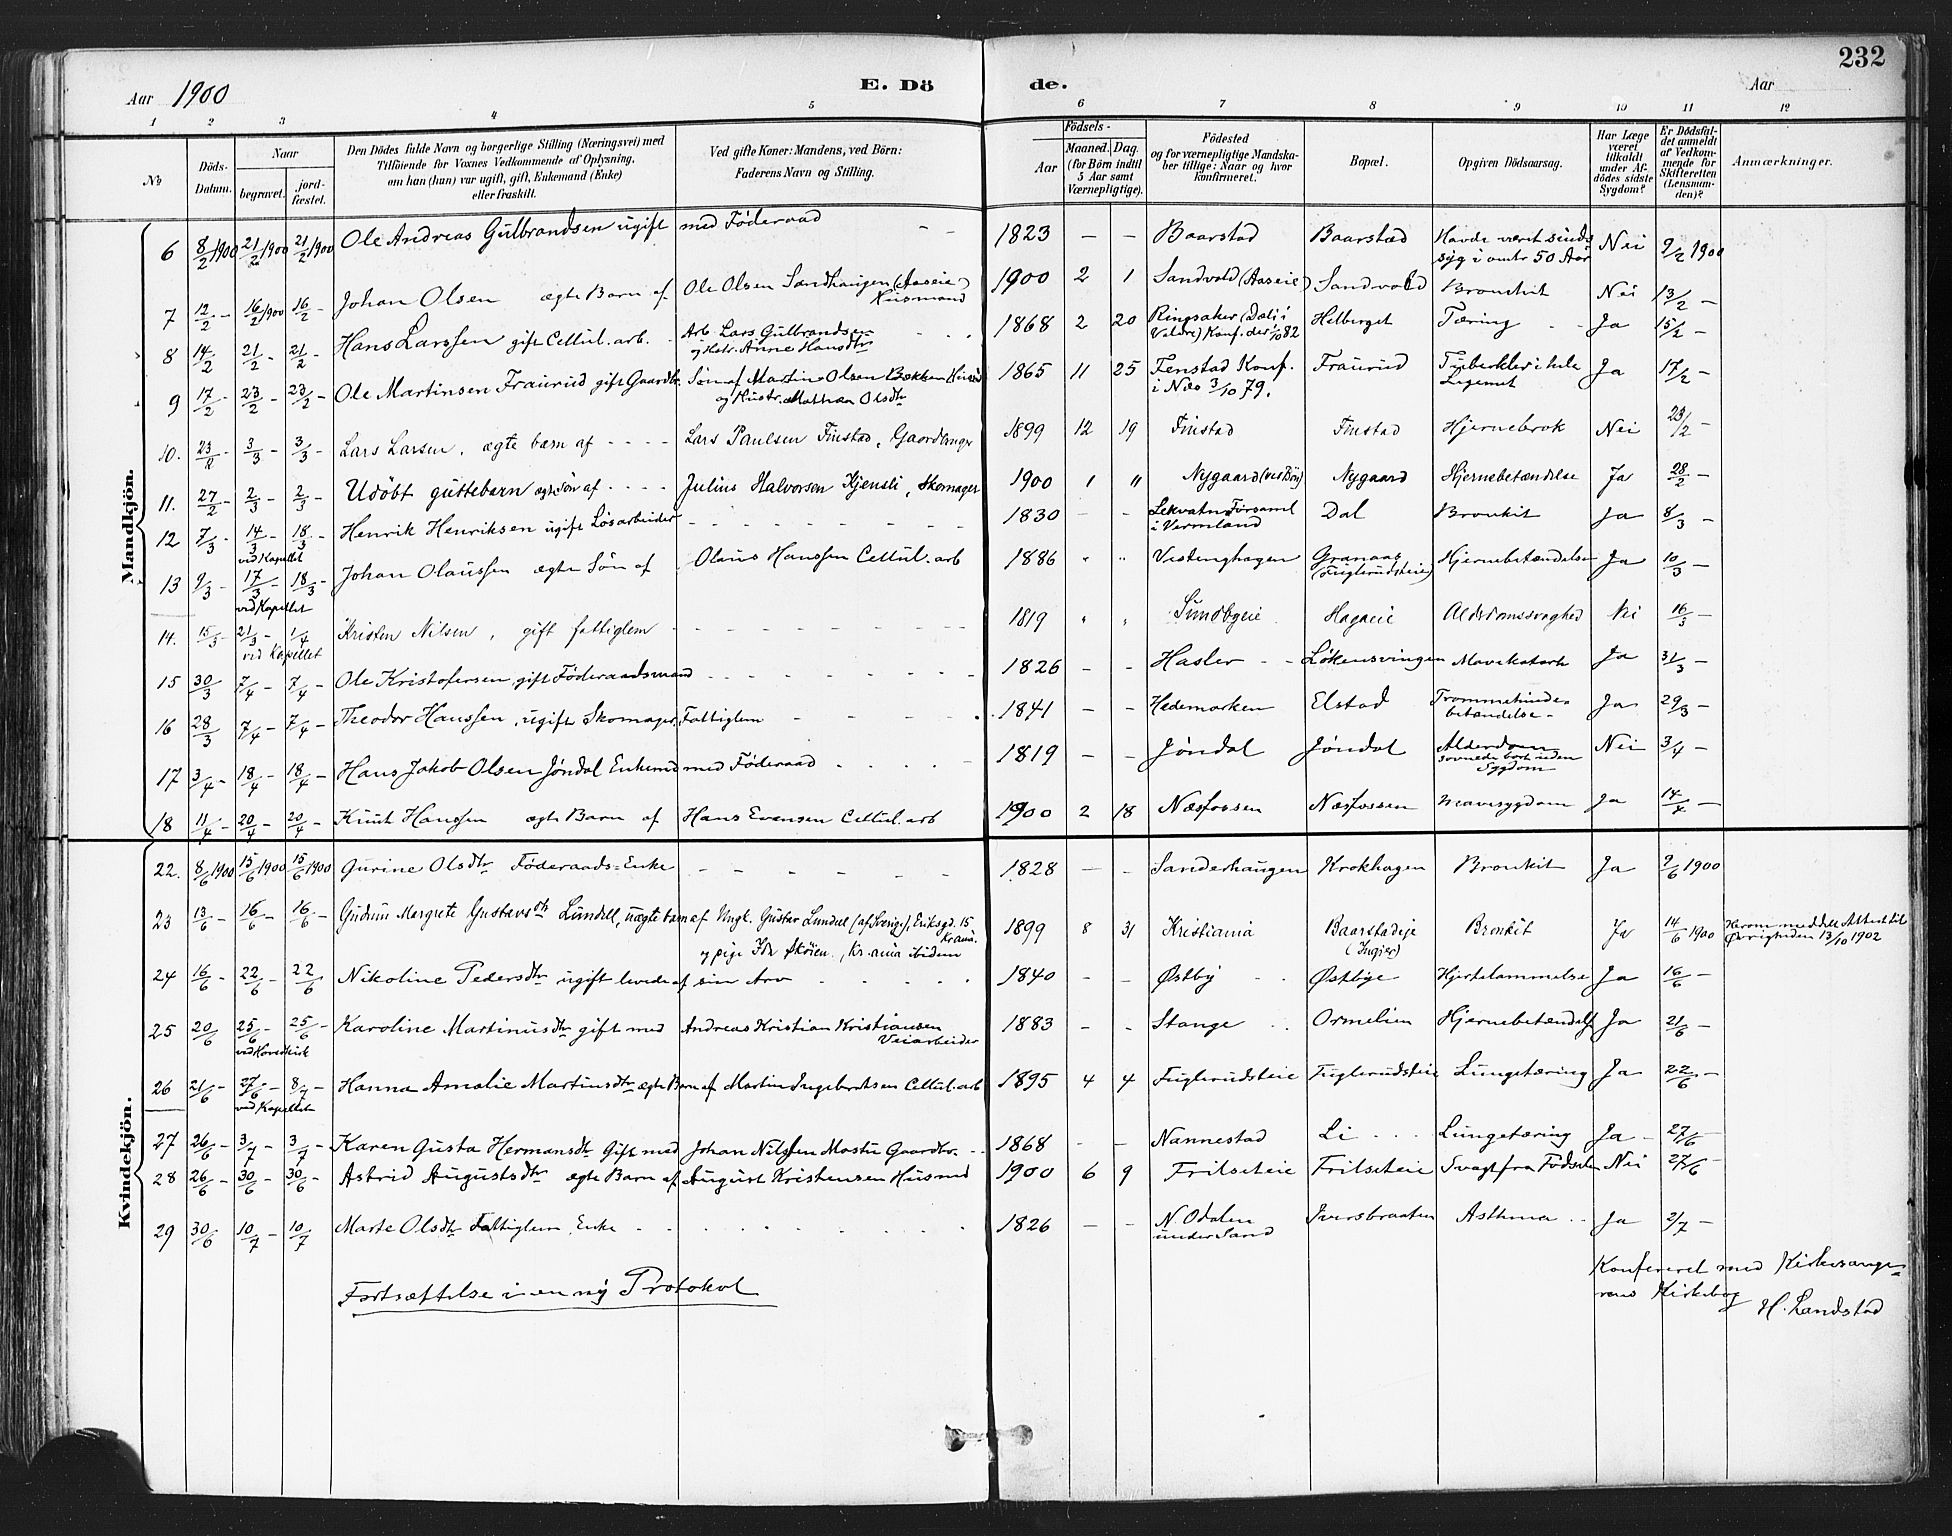 232
Aar 1900 E. Dö de. Aar
1 2 3 4 5 6 7 8 9 10 11 12
No Döds-Datum. Naar begravet. jord-fæstet. Den Dödes fulde Navn og borgerlige Stilling (Næringsvei) med Tilföiende for Voxnes Vedkommende af Oplysning, om han (hun) var ugift, gift, Enkemand (Enke) eller fraskilt. Ved gifte Koner: Mandens, ved Börn: Faderens Navn og Stilling. Födsels- Aar Maaned. Dag. (for Börn indtil 5 Aar samt Værnepligtige). Födested og for værnepligtige Mandska-ber tillige: Naar og hvor konfirmeret. Bopæl. Opgiven Dödsaarsag. Har Læge været tilkaldt under Af-dödes sidste Sygdom? Er Dödsfal-det anmeldt af Vedkom-mende for Skifteretten (Lensman-den)? Anmærkninger.
Mandkjön.
6 8/2 1900 21/2 1900 21/2 1900 Ole Andreas Gulbrandsen ugift med Föderaad - - 1823 - - Baarstad Baarstad Havde været sinds syg i omtr 50 Aar Nei 9/2 1900
7 12/2 - 16/2 1900 16/2 - Johan Olsen ægte Barn af Ole Olsen Sandhaugen (Aaseie) Husmand 1900 2 1 Sandvold (Aaseie) Sandvold Bronkit Nei 13/2 -
8 14/2 21/2 - 21/2 - Hans Larssen gift Cellul. arb. Arb. Lars Gulbrandsen og Hstr. Anne Hansdtr 1868 2 20 Ringsaker (Dæli i Veldre) Konf. der 1/10 82 Helberget Tæring - - Ja 15/2 -
9 17/2 - 23/2 - 23/2 - Ole Martinsen Fraurud gift Gaardbr. Søn af Martin Olsen Bækken Husm og Hustr. Mathea Olsdtr 1865 11 25 Fenstad Konf. i Næs 3/10 79. Fraurud Tuberkler i hele Legemet Ja 17/2 -
10. 23/2 - 3/3 - 3/3 - Lars Larsen, ægte barn af - - - - Lars Paulsen Finstad, Gaardbruger 1899 12 19 Finstad Finstad Hjernebrok Nei 23/2 -
11. 27/2 - 2/3 - 2/3 - Udöbt guttebarn ægte Søn af - - - - Julius Halvorsen Kjensli, Skomager 1900 1 " Nygaard (ved Bøn) Nygaard Hjernebetændelse Ja 28/2 -
12 7/3 - 14/3 - ved Kapellet 18/3 - Henrik Henriksen ugift Løsarbeider - - - - - - - 1830 - - Lekvatn Forsaml i Vermland Dal Bronkit Ja 8/3 -
13 9/3 - 17/3 - ved Kapellet 18/3 - Johan Olaussen ægte Søn af Olaus Hanssen Cellul. arb 1886 " " Vestenghagen Granaas (Fuglerudseie) Hjernebetændelse Ja 10/3 -
14. 15/3 - 21/3 - ved Kapellet 1/4 Kristen Nilsen, gift fattiglem - - - - - - - - 1819 " " Sundbyeie Hagaeie Alderdomssvaghed Nei 16/3 -
15 30/3 7/4 - 7/4 - Ole Kristofersen, gift Föderaadsmand - - - - - - - 1826 - - Hasler - - Løkensvingen Mavekatarh Ja 31/3 -
16 28/3 7/4 - 7/4 - Theodor Hanssen, ugift Skomager, Fattiglem - - - - 1841 - - Hedemarken Elstad Trommehinde-betændelse - Ja 29/3 -
17 3/4 - 18/4 - 18/4 - Hans Jakob Olsen Jøndal Enkemd med Föderaad - - - - 1819 - - Jøndal Jøndal Alderdom sovnede bort uden Sygdom Nei 3/4 -
18 11/4 - 20/4 - 20/4 - Knut Hanssen ægte Barn af Hans Evensen Cellul. arb 1900 2 18 Næsfossen Næsfossen Mavesygdom Ja 14/4 -
Kvindekjön.
22. 8/6 1900 15/6 1900 15/6 1900 Gurine Olsdtr Föderaads-Enke - - - - - - 1828 - - Sanderhaugen Krokhagen Bronkit Ja 9/6 1900
23 13/6 - 16/6 - 16/6 - Gudrun Margrete Gustavsdtr Lundell, uægte barn af Ungk. Gustav Lundell (af Sverige), Eriksgd. 15 Krania. og pige Ida Sköien, Kr.ania ibidem 1899 8 31 Kristiania Baarstadeie (Ingjer) Bronkit Ja 14/6 1900 Herom meddelt Attest til Övrigheden 13/10 1902
24 16/6 - 22/6 - 22/6 Nikoline Pedersdtr ugift levede af sin Arv - - - - 1840 - - Østby - - Østbye Hjertelammelse Ja 16/6 -
25 20/6 25/6 - ved Hovedkirk 25/6 - Karoline Martinusdtr gift med Andreas Kristian Kristiansen Veiarbeider 1883 - - Stange - - Ormelien Hjernebetændelse Ja 21/6 -
26 21/6 - 27/6 - ved Kapellet 8/7 - Hanna Amalie Martinsdtr ægte Barn af Martin Ingebretsen Cellul. arb 1895 4 4 Fuglerudseie Fuglerudseie Lungetæring Ja 22/6 -
27 26/6 - 3/7 - 3/7 - Karen Gusta Hermansdtr Gift med Johan Nilssen Mostu Gaardbr. - - 1868 - - Nannestad Li - - - Lungetæring Ja - 27/6 -
28 26/6 - 30/6 - 30/6 - Astrid Augustsdtr ægte Barn af August Kristensen Husmd 1900 6 9 Fritseteie Fritseteie Svag fra Födsel Nei 27/6 -
29 30/6 10/7 - 10/7 Marte Olsdtr Fattiglem, Enke - - - - - - - 1826 - - N. Odalen under Sand Iversbraaten Asthma - - Ja 2/7 -
Fortsættelse i en ny Protokol
Konfereret med Kirkesange-
rens Kirkebog
H. Landstad